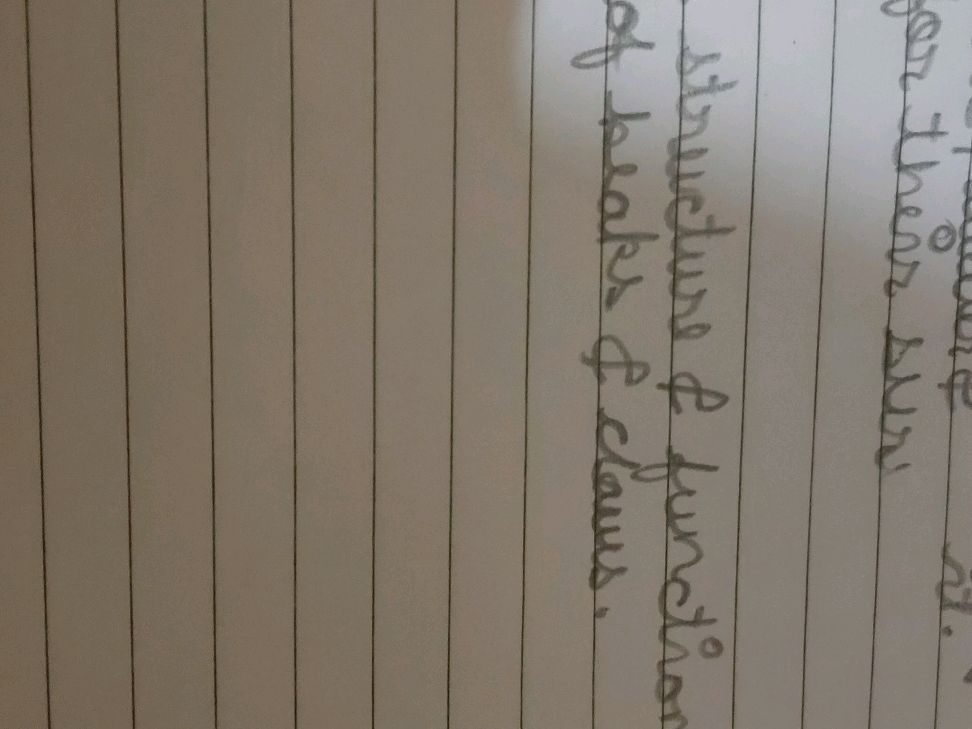 for their sur
structure & function
of beaks & claws.